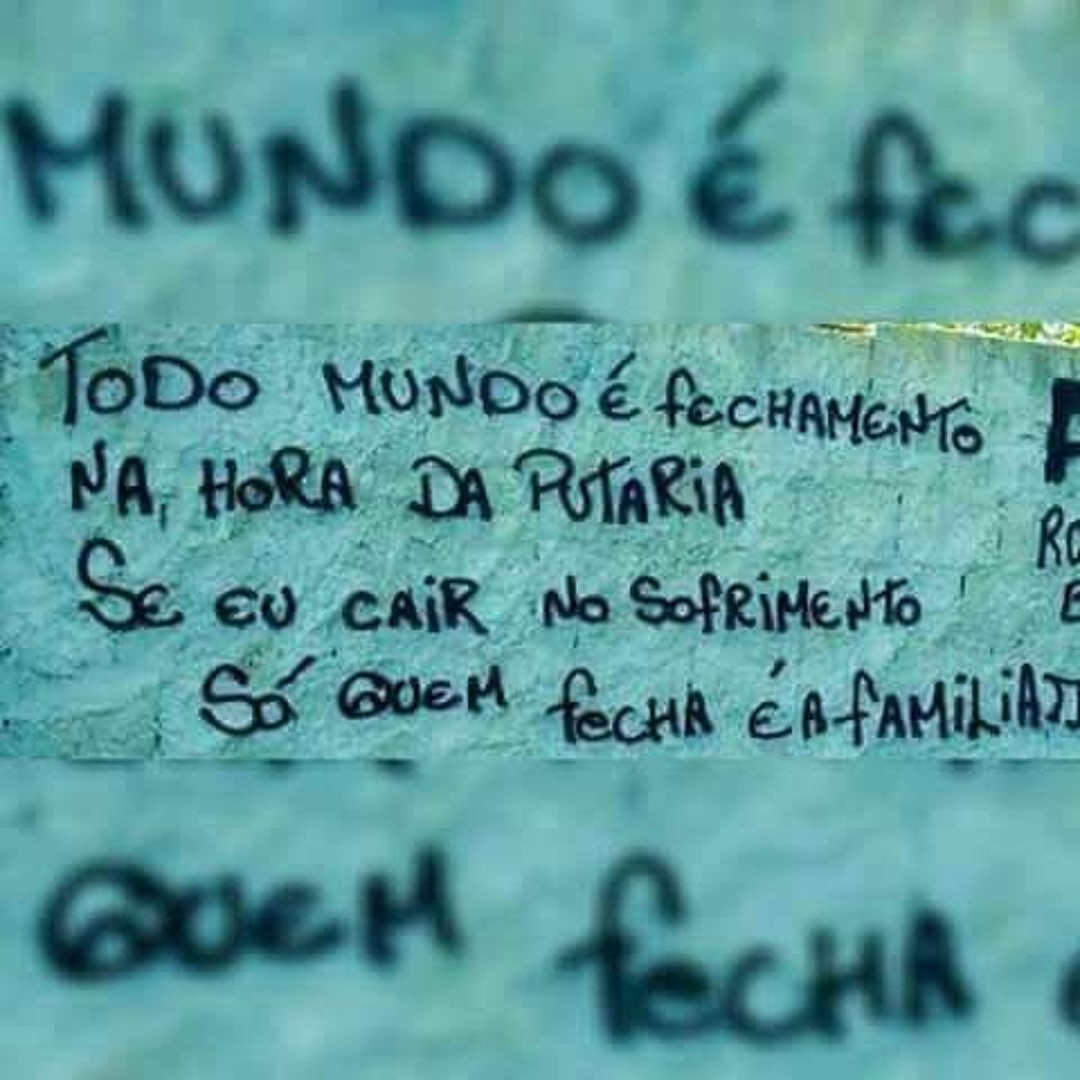 MUNDO É fec
TODO MUNDO É feCHAMENTO
NA, HORA DA PUTARIA
SE EU CAIR NO SOfRIMENTO
SÓ QUEM feCHA É A fAMILIA
QUEM feCHA